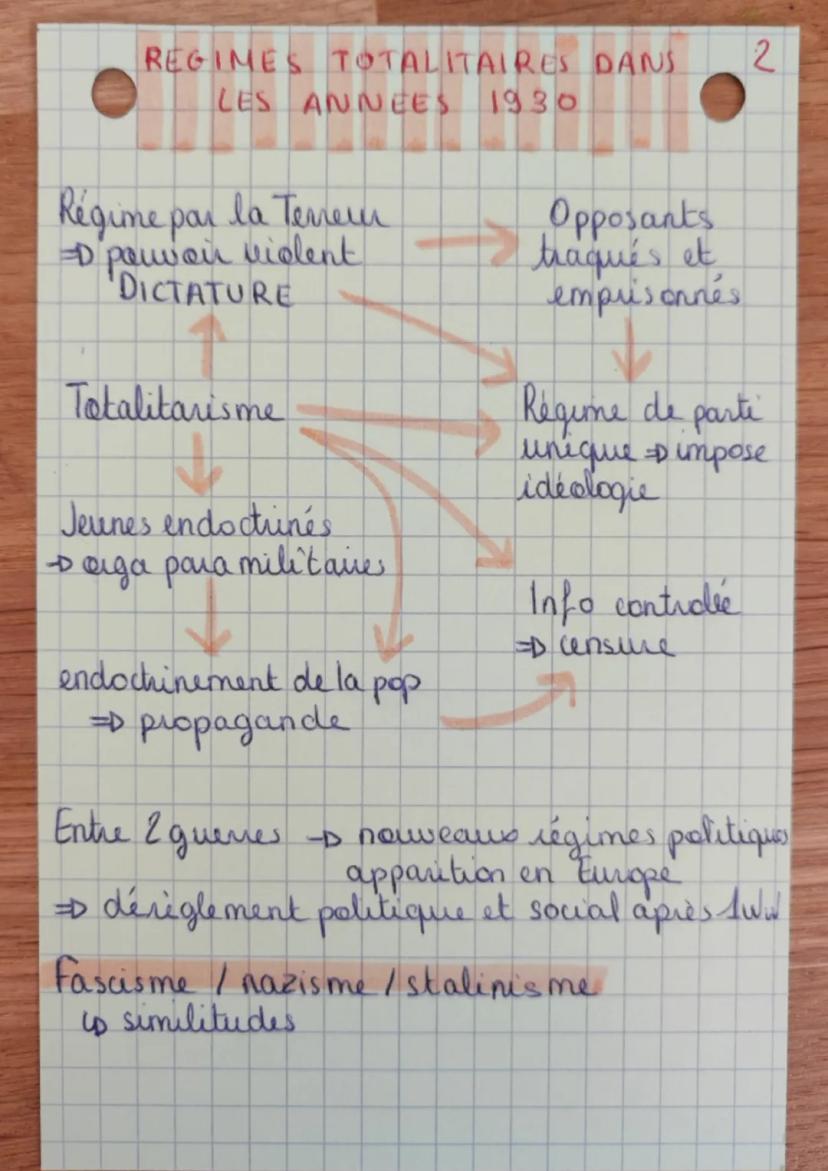 REGIMES TOTALITAIRES DANS
LES ANNEES 1930
2
Régime par la Terreur
⇒ pouvoir violent
DICTATURE
Opposants
traqués et
emprisonnés
Totalitarisme
Régime de parti
unique ⇒ impose
idéologie
Jeunes endoctrinés
→ orga paramilitaires
Info controlée
⇒ censure
endoctrinement de la pop
⇒ propagande
Entre 2 guerres → nouveaux régimes politiques
apparition en Europe
⇒ dérèglement politique et social après 1WW
Fascisme / nazisme / stalinisme
↳ similitudes